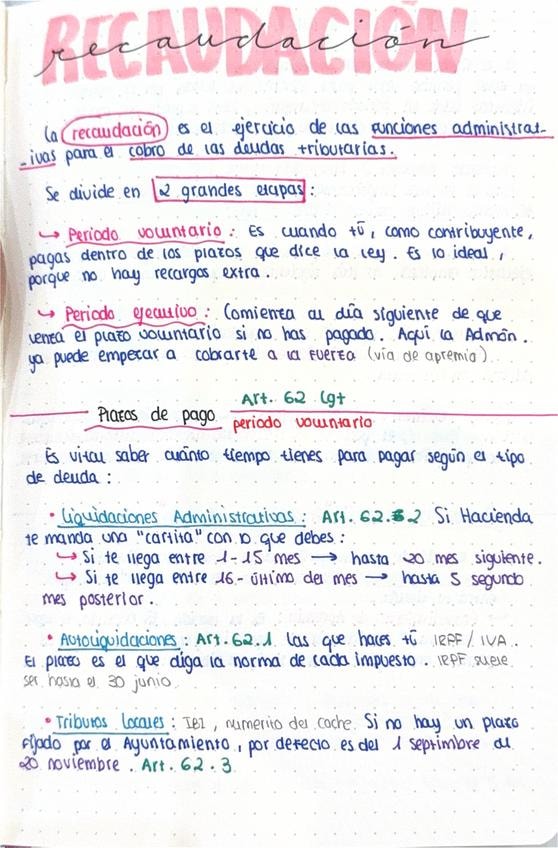 RECAUDACIÓN
recaudación
La recaudación es el ejercicio de las funciones administrat-
-ivas para el cobro de las deudas tributarias.
Se divide en 2 grandes etapas:
↪ Periodo voluntario: Es cuando tú, como contribuyente,
pagas dentro de los plazos que dice la ley. Es lo ideal,
porque no hay recargos extra.
↪ Periodo ejecutivo: Comienza al día siguiente de que
venza el plazo voluntario si no has pagado. Aquí la Admón.
ya puede empezar a cobrarte a la fuerza (vía de apremio)
Plazos de pago Art. 62 lgt
periodo voluntario
Es vital saber cuánto tiempo tienes para pagar según el tipo
de deuda:
• Liquidaciones Administrativas: Art. 62.2 Si Hacienda
te manda una "cartita" con lo que debes:
↪ Si te llega entre 1-15 mes → hasta 20 mes siguiente.
↪ Si te llega entre 16-último del mes → hasta 5 segundo
mes posterior.
• Autoliquidaciones: Art. 62.1 las que haces tú IRPF/IVA.
El plazo es el que diga la norma de cada impuesto. IRPF suele
ser hasta el 30 junio
• Tributos Locales: IBI, numerito del coche. Si no hay un plazo
fijado por el Ayuntamiento, por defecto es del 1 septimbre al
20 noviembre. Art. 62.3